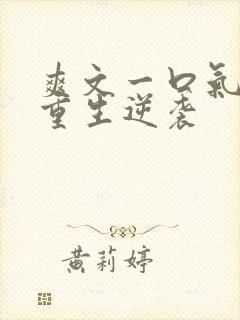 爽文一口氣
重生逆袭
黄莉婷